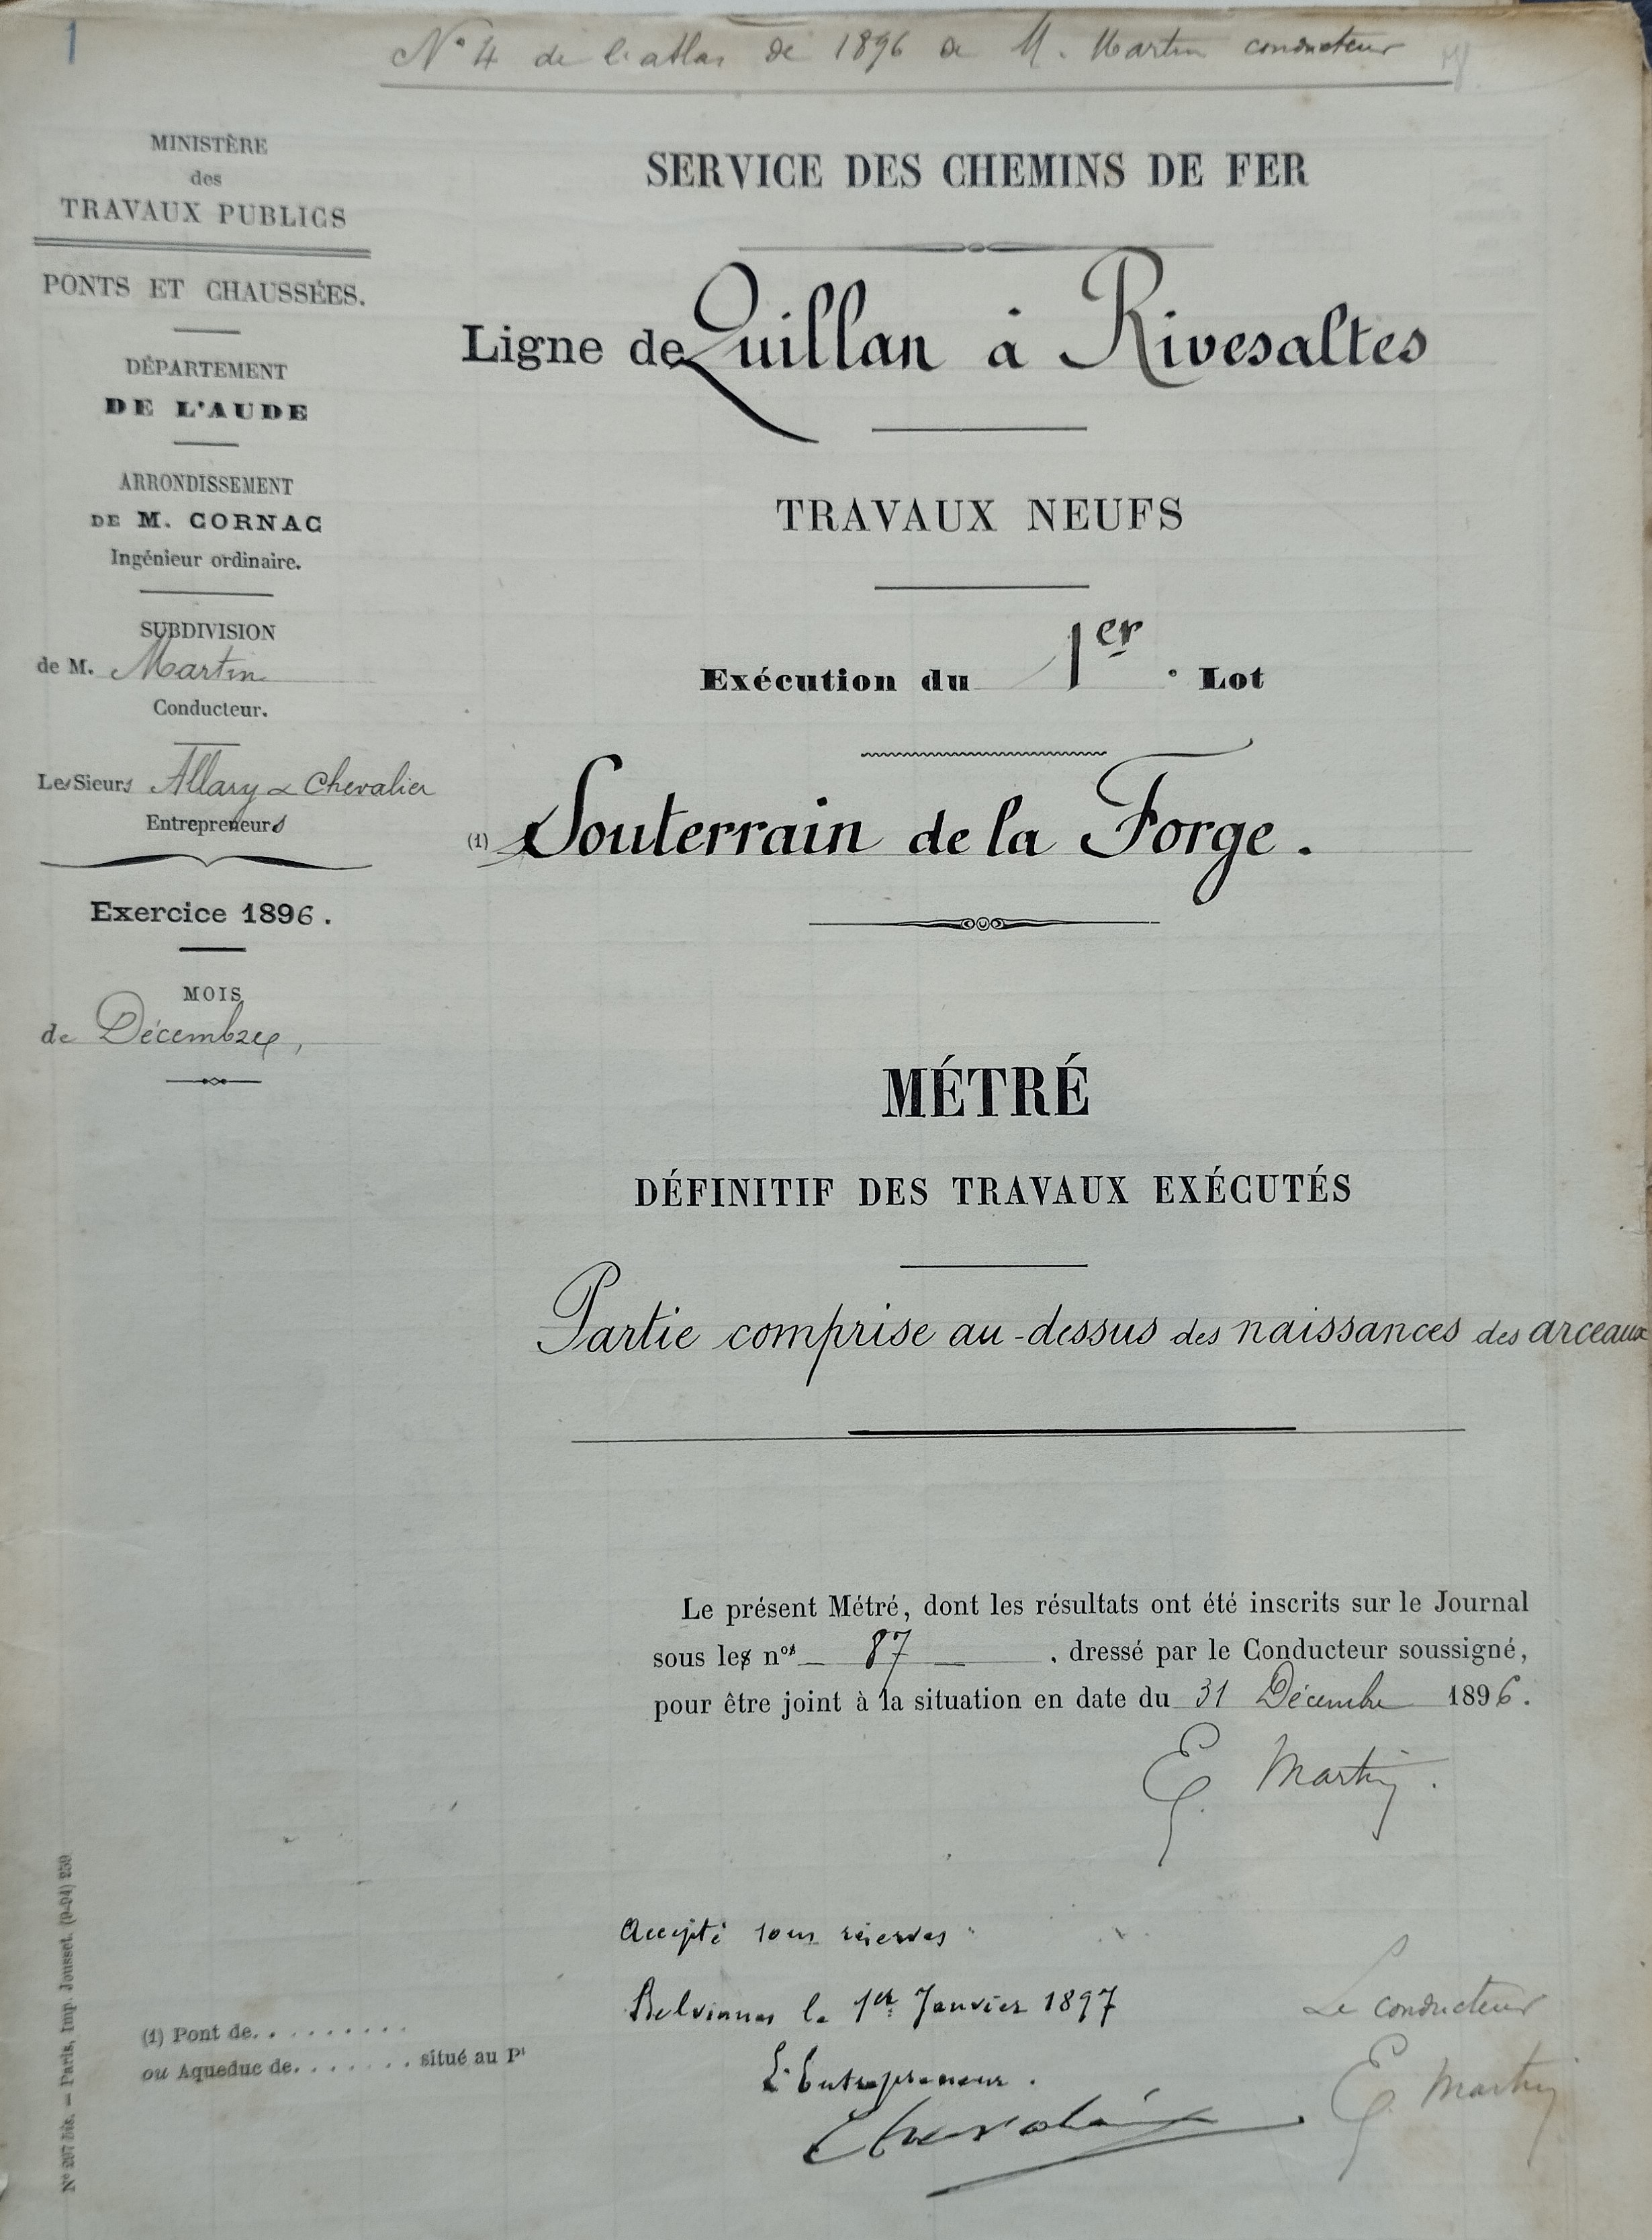 1
N° 4 de l'atlas de 1896 de M. Martin conducteur
MINISTÈRE
des
TRAVAUX PUBLICS
PONTS ET CHAUSSÉES.
DÉPARTEMENT
DE L'AUDE
ARRONDISSEMENT
DE M. CORNAC
Ingénieur ordinaire.
SUBDIVISION
de M. Martin
Conducteur.
Les Sieurs Allary & Chevalier
Entrepreneurs
Exercice 1896.
MOIS
de Décembre,
SERVICE DES CHEMINS DE FER
Ligne de Quillan à Rivesaltes
TRAVAUX NEUFS
Exécution du 1er Lot
(1) Souterrain de la Forge.
MÉTRÉ
DÉFINITIF DES TRAVAUX EXÉCUTÉS
Partie comprise au-dessus des naissances des arceaux
Le présent Métré, dont les résultats ont été inscrits sur le Journal
sous les nos 87 . dressé par le Conducteur soussigné,
pour être joint à la situation en date du 31 Décembre 1896.
E. Martin.
Accepté sous réserves
Belvianes le 1er Janvier 1897
L'Entrepreneur.
Chevalier
Le conducteur
E. Martin
(1) Pont de. . . . . . . . . .
ou Aqueduc de. . . . . . . situé au Pt
N° 207 bis. — Paris, Imp. Jousset. (9-94) 259